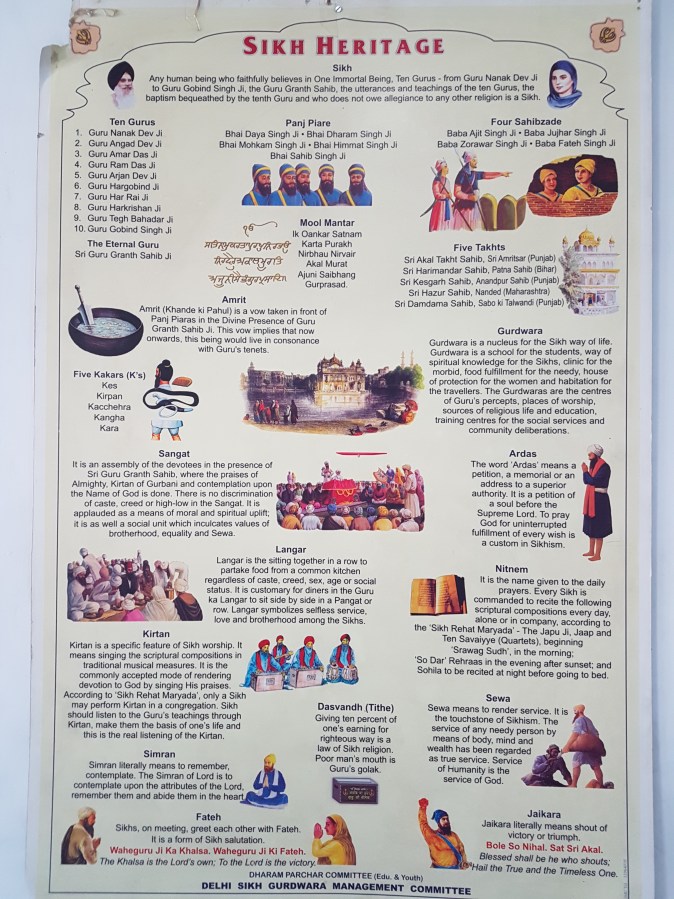 SIKH HERITAGE
Sikh
Any human being who faithfully believes in One Immortal Being, Ten Gurus - from Guru Nanak Dev Ji
to Guru Gobind Singh Ji, the Guru Granth Sahib, the utterances and teachings of the ten Gurus, the
baptism bequeathed by the tenth Guru and who does not owe allegiance to any other religion is a Sikh.
Ten Gurus
1. Guru Nanak Dev Ji
2. Guru Angad Dev Ji
3. Guru Amar Das Ji
4. Guru Ram Das Ji
5. Guru Arjan Dev Ji
6. Guru Hargobind Ji
7. Guru Har Rai Ji
8. Guru Harkrishan Ji
9. Guru Tegh Bahadar Ji
10. Guru Gobind Singh Ji
The Eternal Guru
Sri Guru Granth Sahib Ji
Panj Piare
Bhai Daya Singh Ji • Bhai Dharam Singh Ji
Bhai Mohkam Singh Ji • Bhai Himmat Singh Ji
Bhai Sahib Singh Ji
Four Sahibzade
Baba Ajit Singh Ji • Baba Jujhar Singh Ji
Baba Zorawar Singh Ji • Baba Fateh Singh Ji
ੴ
ਸਤਿਨਾਮੁਕਰਤਾਪੁਰਖੁਨਿਰਭਉ
ਨਿਰਵੈਰੁਅਕਾਲਮੂਰਤਿ
ਅਜੂਨੀਸੈਭੰਗੁਰਪ੍ਰਸਾਦਿ
Mool Mantar
Ik Oankar Satnam
Karta Purakh
Nirbhau Nirvair
Akal Murat
Ajuni Saibhang
Gurprasad.
Five Takhts
Sri Akal Takht Sahib, Sri Amritsar (Punjab)
Sri Harimandar Sahib, Patna Sahib (Bihar)
Sri Kesgarh Sahib, Anandpur Sahib (Punjab)
Sri Hazur Sahib, Nanded (Maharashtra)
Sri Damdama Sahib, Sabo ki Talwandi (Punjab)
Amrit
Amrit (Khande ki Pahul) is a vow taken in front
of Panj Piaras in the Divine Presence of Guru
Granth Sahib Ji. This vow implies that now
onwards, this being would live in consonance
with Guru's tenets.
Gurdwara
Gurdwara is a nucleus for the Sikh way of life.
Gurdwara is a school for the students, way of
spiritual knowledge for the Sikhs, clinic for the
morbid, food fulfillment for the needy, house
of protection for the women and habitation for
the travellers. The Gurdwaras are the centres
of Guru's percepts, places of worship,
sources of religious life and education,
training centres for the social services and
community deliberations.
Five Kakars (K's)
Kes
Kirpan
Kacchehra
Kangha
Kara
Sangat
It is an assembly of the devotees in the presence of
Sri Guru Granth Sahib Ji, where the praises of
Almighty, Kirtan of Gurbani and contemplation upon
the Name of God is done. There is no discrimination
of caste, creed or high-low in the Sangat. It is
applauded as a means of moral and spiritual uplift;
it is as well a social unit which inculcates values of
brotherhood, equality and Sewa.
Ardas
The word 'Ardas' means a
petition, a memorial or an
address to a superior
authority. It is a petition of
a soul before the
Supreme Lord. To pray
God for uninterrupted
fulfillment of every wish is
a custom in Sikhism.
Langar
Langar is the sitting together in a row to
partake food from a common kitchen
regardless of caste, creed, sex, age or social
status. It is customary for diners in the Guru
ka Langar to sit side by side in a Pangat or
row. Langar symbolizes selfless service,
love and brotherhood among the Sikhs.
Nitnem
It is the name given to the daily
prayers. Every Sikh is
commanded to recite the following
scriptural compositions every day,
alone or in company, according to
the 'Sikh Rehat Maryada' - The Japu Ji, Jaap and
Ten Savaiyye (Quartets), beginning
'Srawag Sudh', in the morning;
'So Dar' Rehraas in the evening after sunset; and
Sohila to be recited at night before going to bed.
Kirtan
Kirtan is a specific feature of Sikh worship. It
means singing the scriptural compositions in
traditional musical measures. It is the
commonly accepted mode of rendering
devotion to God by singing His praises.
According to 'Sikh Rehat Maryada', only a Sikh
may perform Kirtan in a congregation. Sikh
should listen to the Guru's teachings through
Kirtan, make them the basis of one's life and
this is the real listening of the Kirtan.
Dasvandh (Tithe)
Giving ten percent of
one's earning for
righteous way is a
law of Sikh religion.
Poor man's mouth is
Guru's golak.
Sewa
Sewa means to render service. It is
the touchstone of Sikhism. The
service of any needy person by
means of body, mind and
wealth has been regarded
as true service. Service
of Humanity is the
service of God.
Simran
Simran literally means to remember,
contemplate. The Simran of Lord is to
contemplate upon the attributes of the Lord,
remember them and abide them in the heart.
Fateh
Sikhs, on meeting, greet each other with Fateh.
It is a form of Sikh salutation.
Waheguru Ji Ka Khalsa. Waheguru Ji Ki Fateh.
The Khalsa is the Lord's own; To the Lord is the victory.
Jaikara
Jaikara literally means shout of
victory or triumph.
Bole So Nihal. Sat Sri Akal.
Blessed shall be he who shouts;
Hail the True and the Timeless One.
DHARAM PARCHAR COMMITTEE (Edu. & Youth)
DELHI SIKH GURDWARA MANAGEMENT COMMITTEE